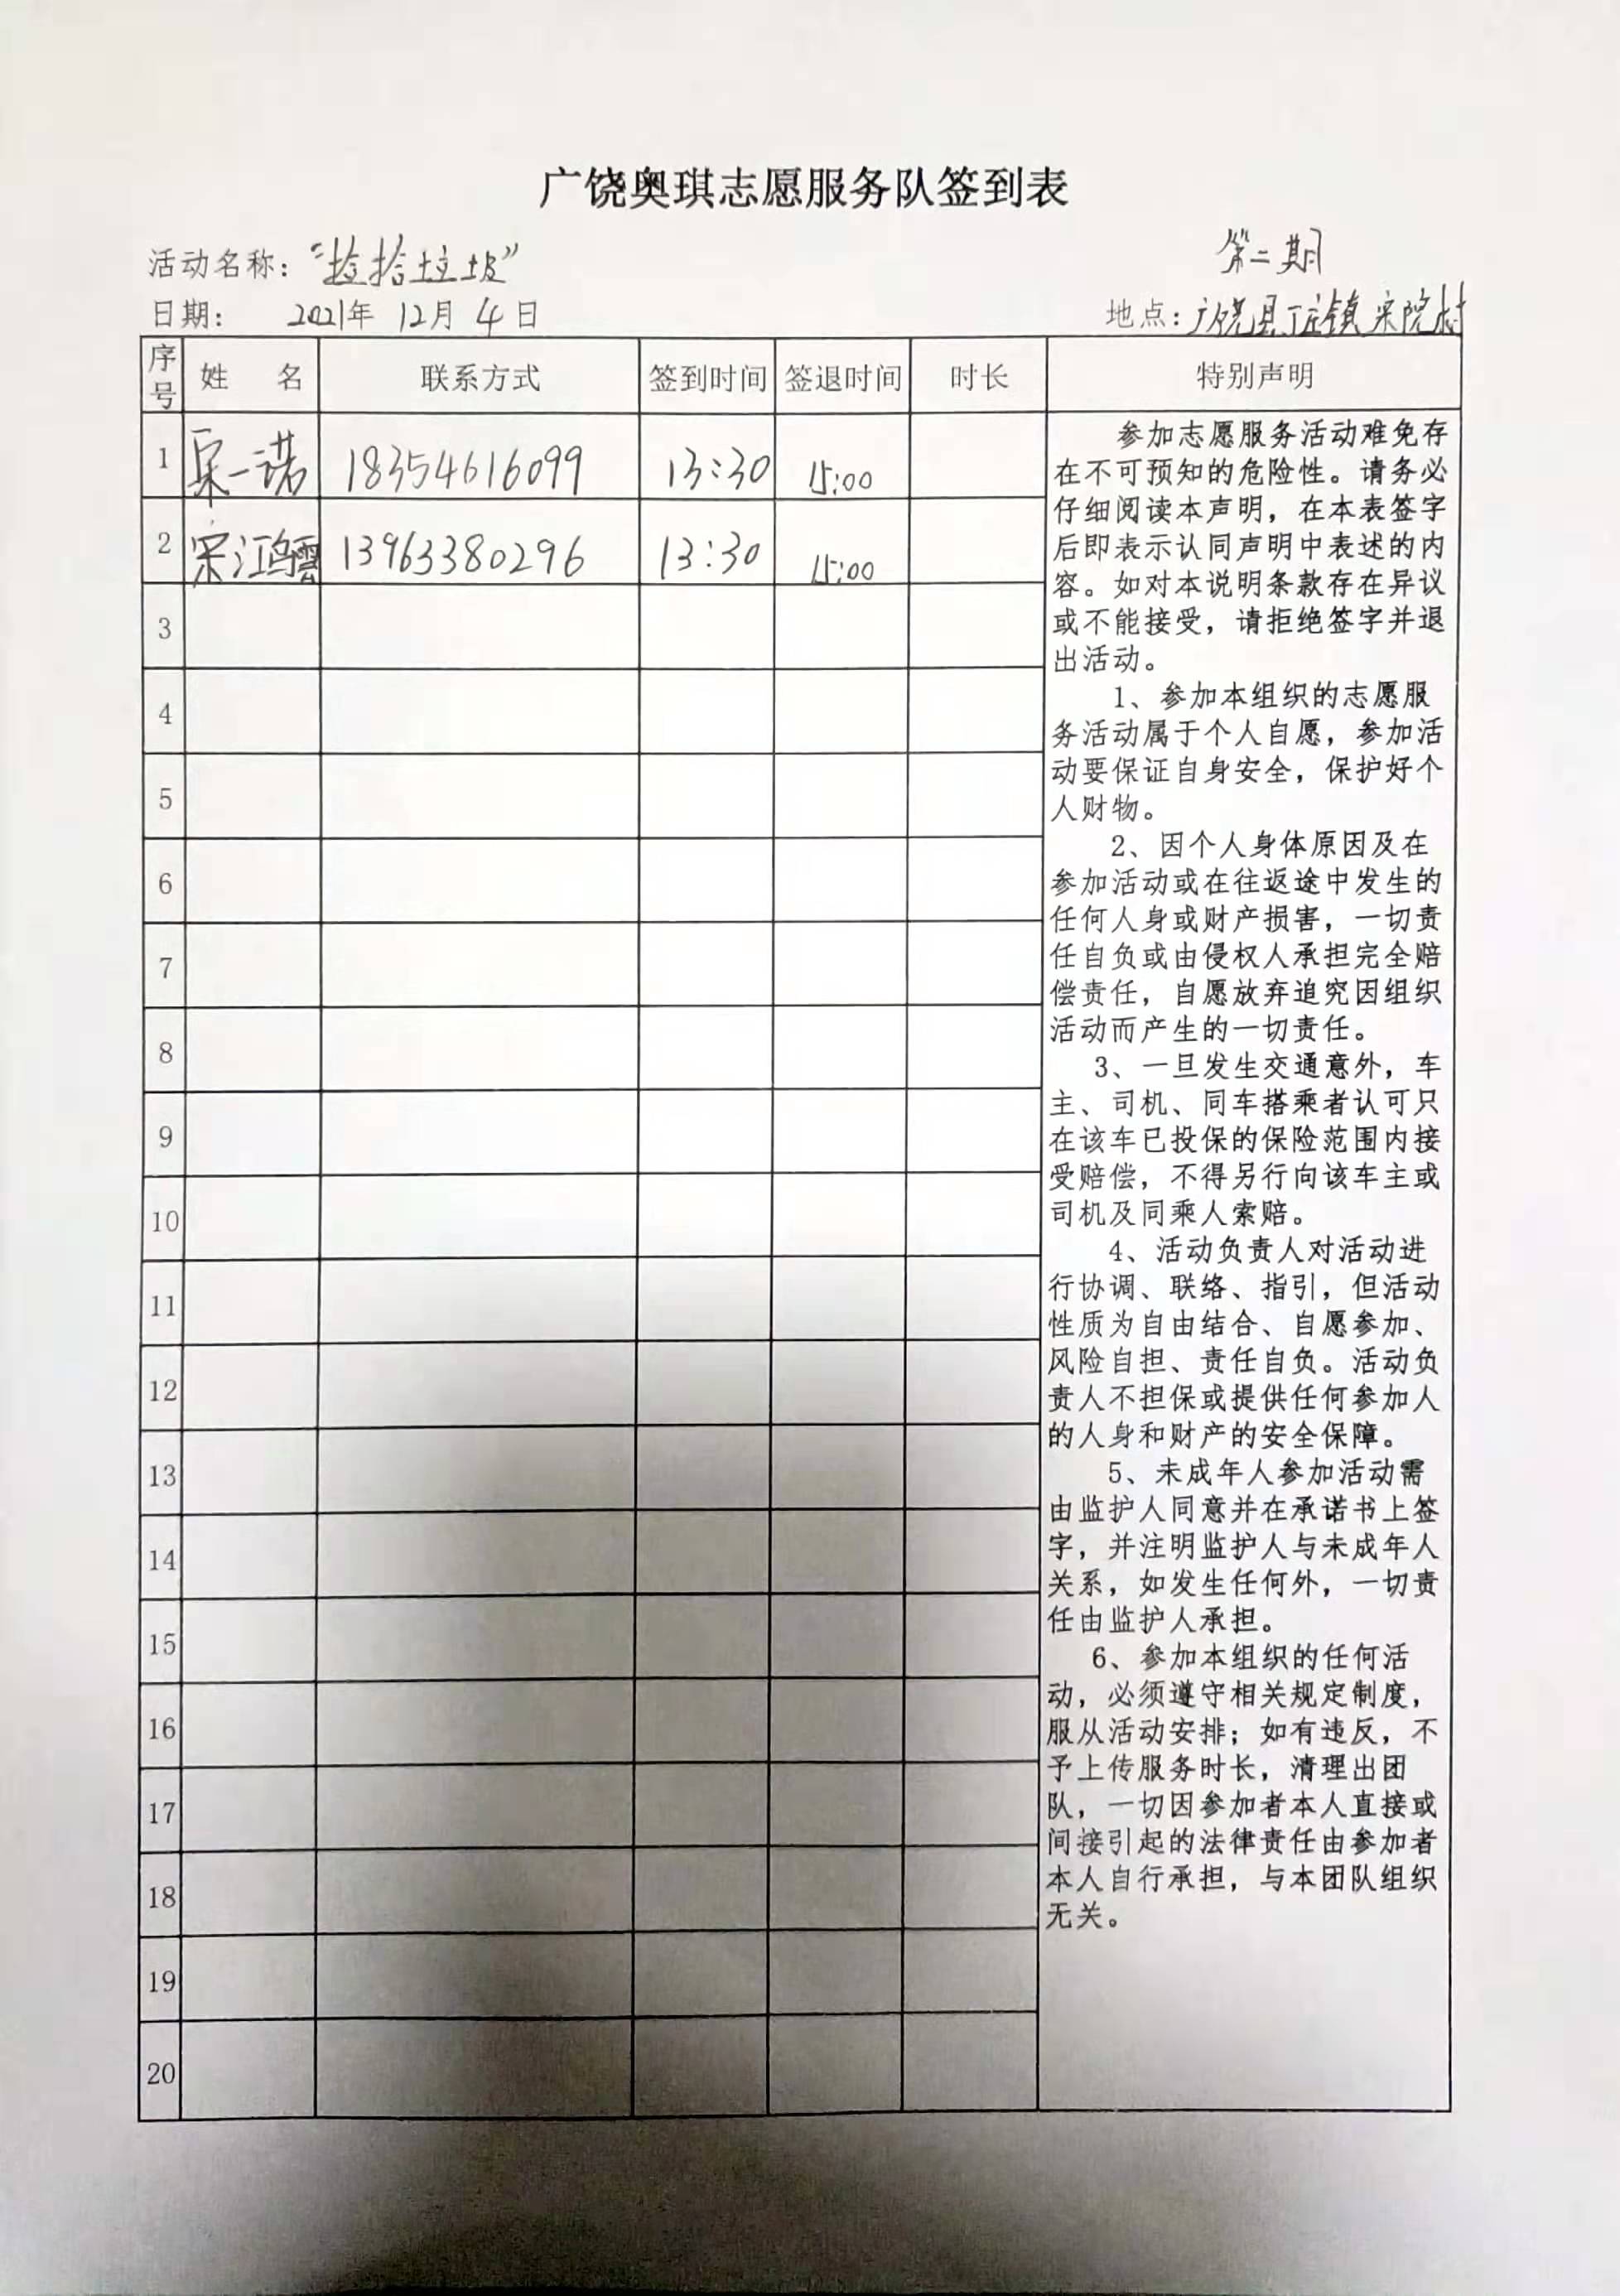 广饶奥琪志愿服务队签到表
活动名称："捡拾垃圾" 第二期
日期： 2021年 12月 4日 地点：广饶县丁庄镇宋院村
序号 姓 名 联系方式 签到时间 签退时间 时长 特别声明
1 宋一诺 18354616099 13:30 15:00
2 宋江 13963380296 13:30 15:00
3
4
5
6
7
8
9
10
11
12
13
14
15
16
17
18
19
20
参加志愿服务活动难免存
在不可预知的危险性。请务必
仔细阅读本声明，在本表签字
后即表示认同声明中表述的内
容。如对本说明条款存在异议
或不能接受，请拒绝签字并退
出活动。
1、参加本组织的志愿服
务活动属于个人自愿，参加活
动要保证自身安全，保护好个
人财物。
2、因个人身体原因及在
参加活动或在往返途中发生的
任何人身或财产损害，一切责
任自负或由侵权人承担完全赔
偿责任，自愿放弃追究因组织
活动而产生的一切责任。
3、一旦发生交通意外，车
主、司机、同车搭乘者认可只
在该车已投保的保险范围内接
受赔偿，不得另行向该车主或
司机及同乘人索赔。
4、活动负责人对活动进
行协调、联络、指引，但活动
性质为自由结合、自愿参加、
风险自担、责任自负。活动负
责人不担保或提供任何参加人
的人身和财产的安全保障。
5、未成年人参加活动需
由监护人同意并在承诺书上签
字，并注明监护人与未成年人
关系，如发生任何外，一切责
任由监护人承担。
6、参加本组织的任何活
动，必须遵守相关规定制度，
服从活动安排；如有违反，不
予上传服务时长，清理出团
队，一切因参加者本人直接或
间接引起的法律责任由参加者
本人自行承担，与本团队组织
无关。